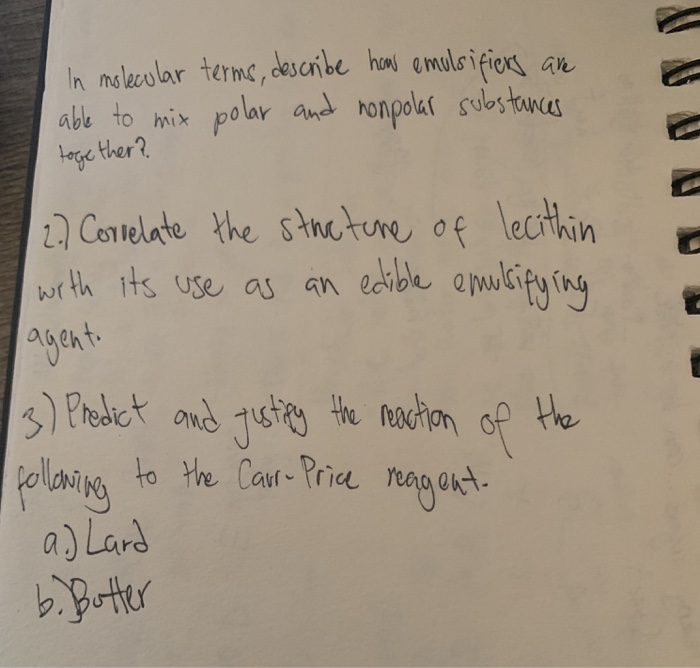 In molecular terms, describe how emulsifiers are
able to mix polar and nonpolar substances
together?
2.) Correlate the structure of lecithin
with its use as an edible emulsifying
agent.
3.) Predict and justify the reaction of the
following to the Carr-Price reagent.
a.) Lard
b.) Butter